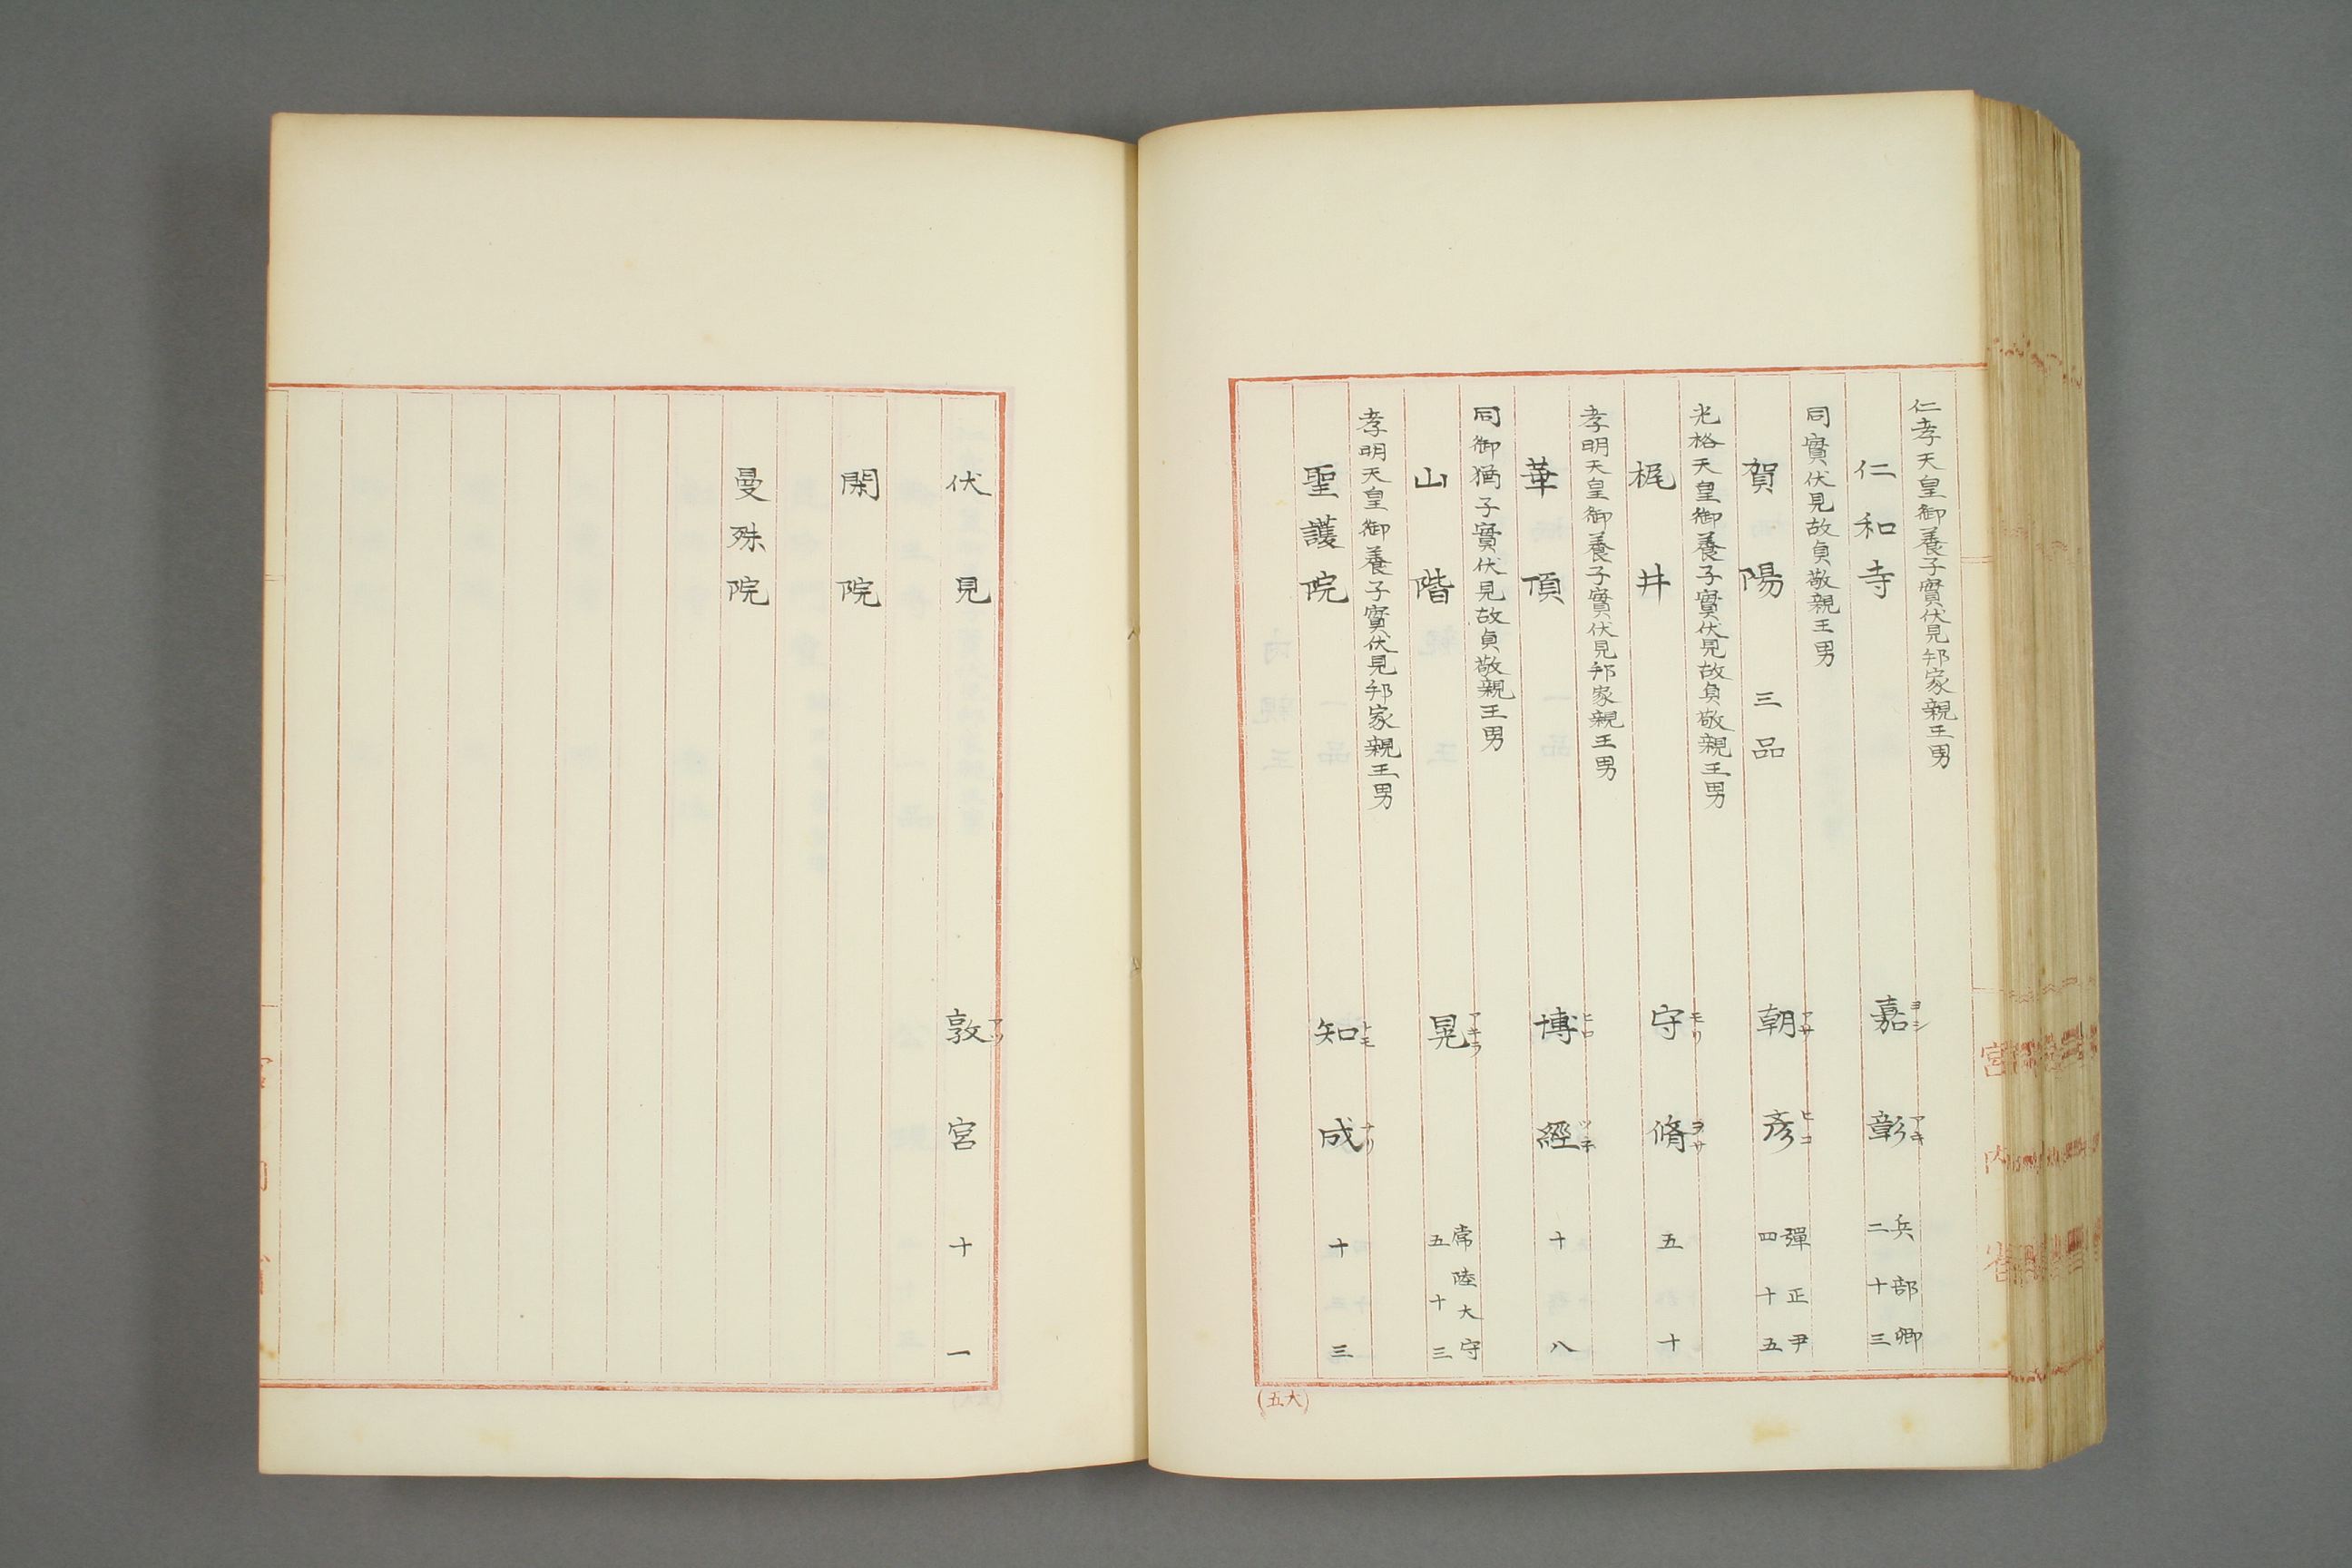 仁孝天皇御養子實伏見邦家親王男
仁和寺 嘉ヨシ 彰アキ 兵部卿 二十三
同實伏見故貞敬親王男
賀陽 三品 朝アサ 彦ヒコ 彈正尹 四十五
光格天皇御養子實伏見故貞敬親王男
梶井 守モリ 脩ヲサ 五十
孝明天皇御養子實伏見邦家親王男
華頂 博ヒロ 經ツネ 十八
同御猶子實伏見故貞敬親王男
山階 晃アキラ 常陸大守 五十三
孝明天皇御養子實伏見邦家親王男
聖護院 知トモ 成ナリ 十三
(大五)
宮内省
伏見 敦アツ 宮 十一
閑院
曼殊院